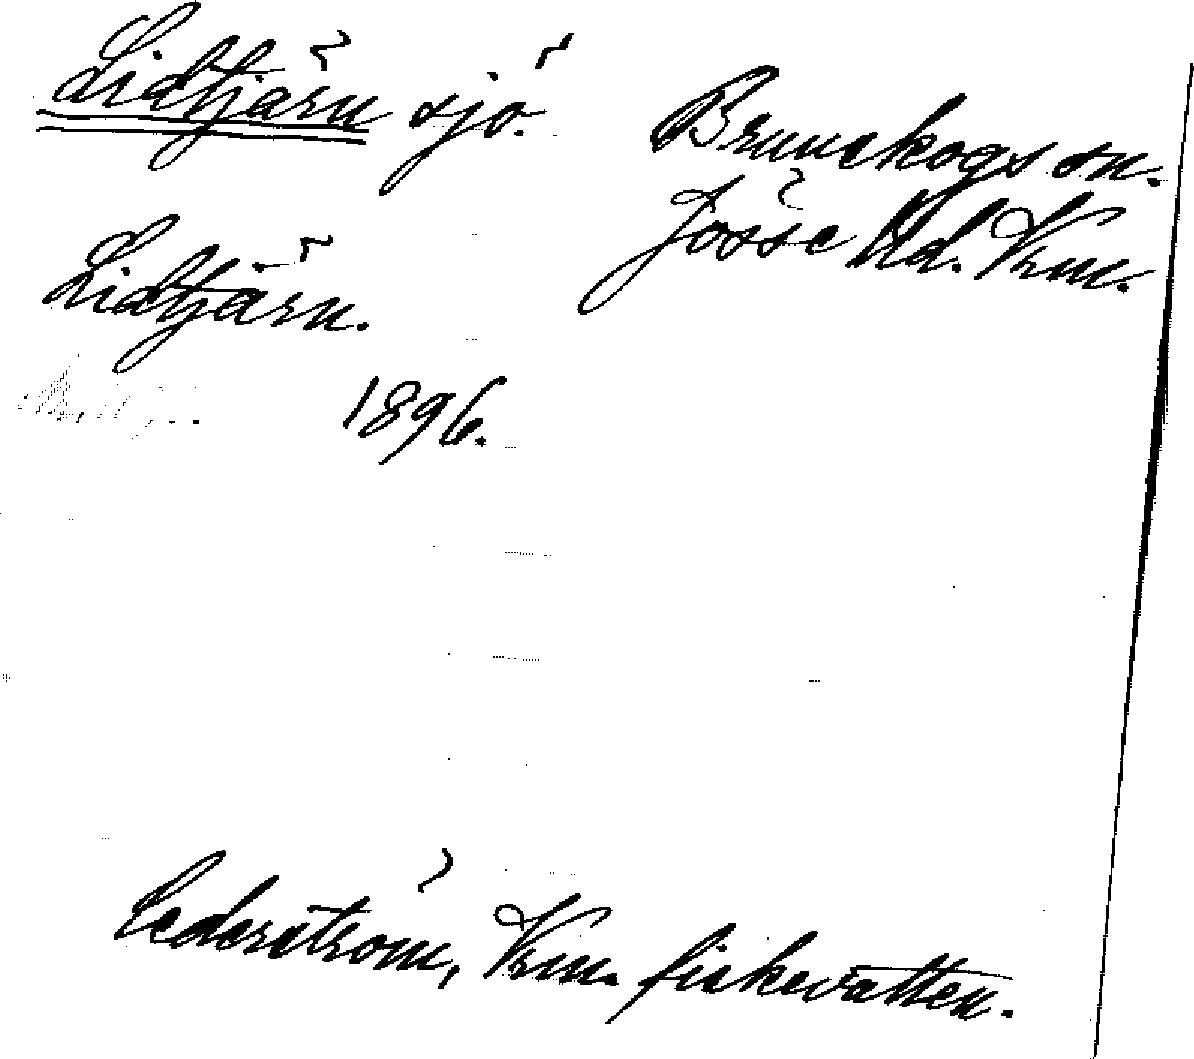 Lidtjärn sjö.
Brunskogs sn.
Jösse Hd. Vrm.
Lidtjärn.
1896.
Cederström, Vrm. fiskevatten.